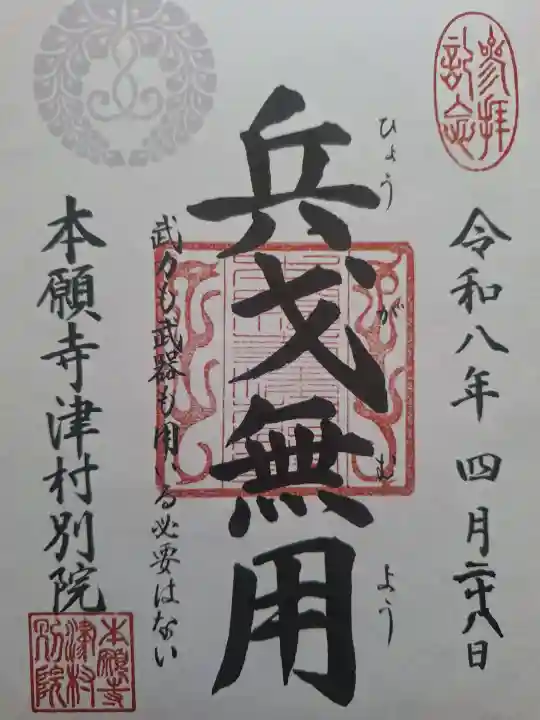 参拝
記念
令和八年 四月二十八日
ひょうがむよう
兵戈無用
武力も武器も用いる必要はない
本願寺津村別院
本願寺
津村
別院